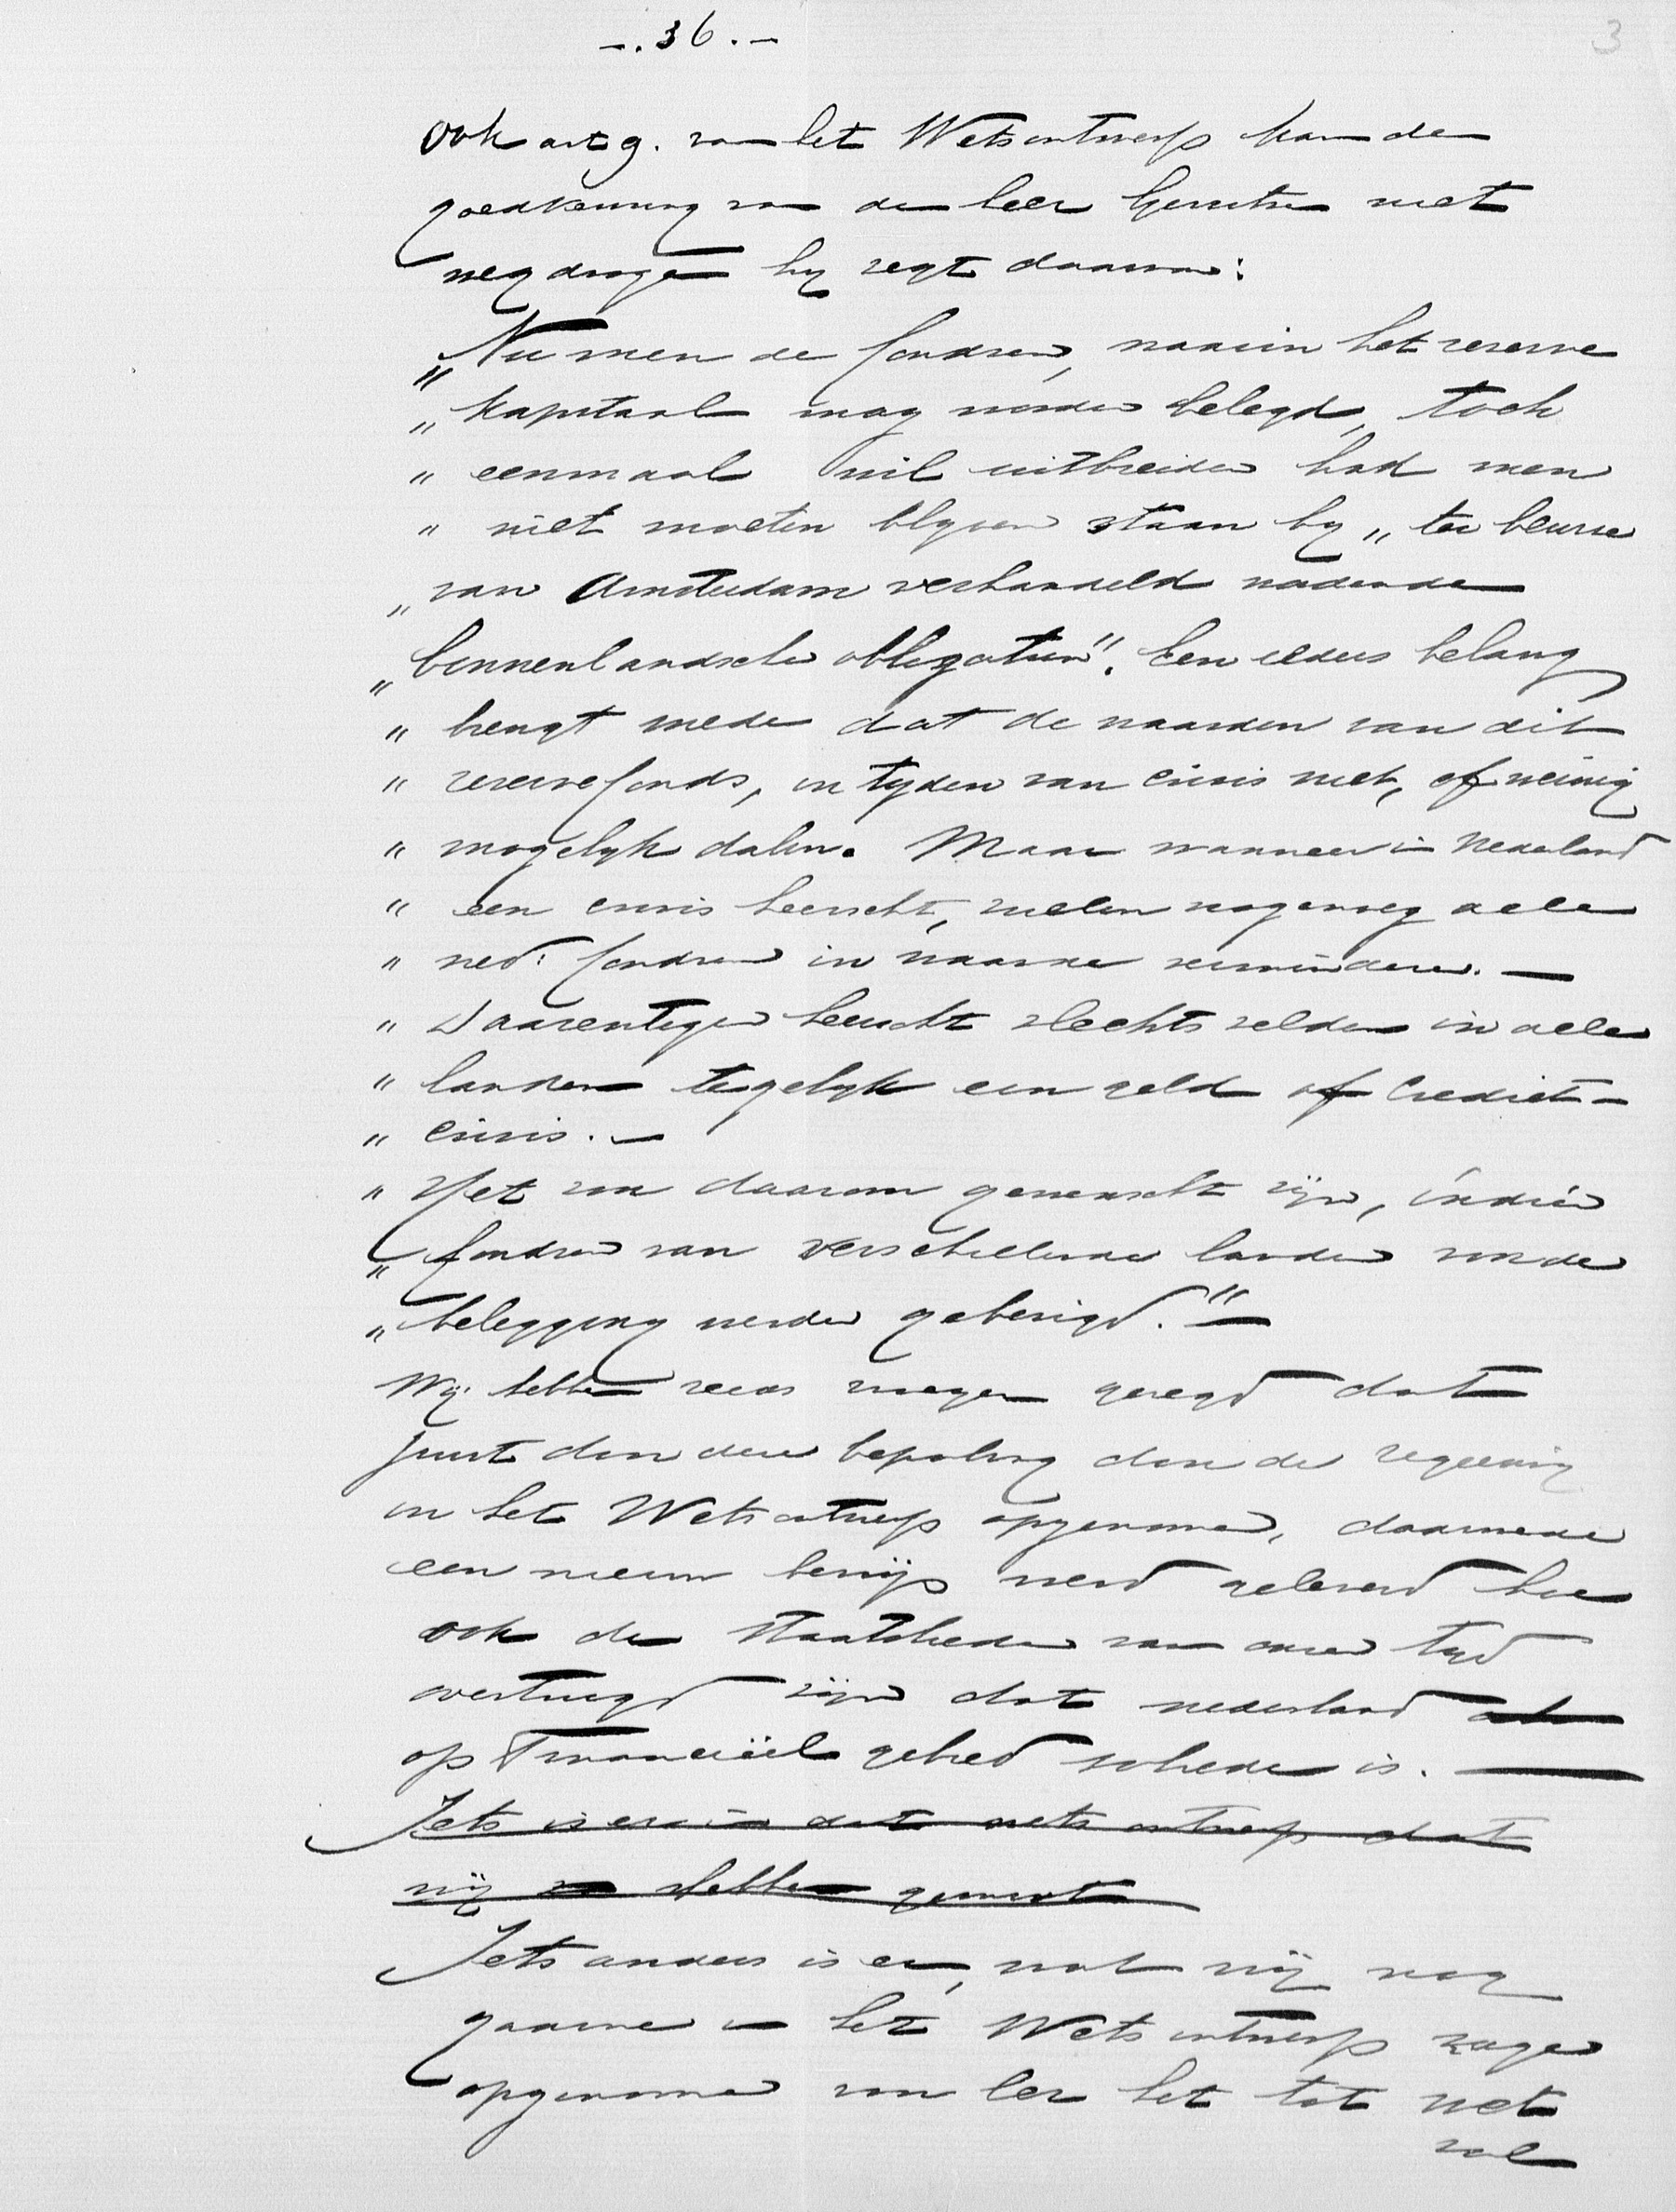 -. 36 .-
3
Ook art 9. van het Wetsontwerp kan de
goedkeuring van den heer Gerritsen niet
wegdragen hy zegt daarvan:
„Nu men de fondsen, waarin het reserve
„kapitaal mag worden belegd, toch
„eenmaal wil uitbreiden had men
„niet moeten blyven staan by „ter beurse
„van Amsterdam verhandeld wordende
„binnenlandsche obligatien". Een ieders belang
„brengt mede dat de waarden van dit
„reservefonds, in tyden van crisis niet, of weinig
„mogelyk dalen. Maar wanneer in Nederland
„een crisis heerscht, zullen nagenoeg alle
„ned: fondsen in waarde verminderen. —
„Daarentegen heerscht slechts zelden in alle
„landen tegelyk een geld of Crediet-
„crisis. —
„Het zou daarom gewenscht zijn, indien
„fondsen van verschillende landen voor de
„belegging werden gebezigd." —
Wij hebben reeds mogen gezegd dat
juist door deze bepaling door de regeering
in het Wetsontwerp opgenomen, daarmede
een nieuw bewijs werd geleverd hoe
ook de staatslieden van onzen tyd
overtuigd zijn dat nederland
op Financiëel gebied solvide is. —
Iets is er in dat wets ontwerp dat
wij hebben gemist
Iets anders is er, wat wij nog
gaarne in het Wetsontwerp zagen
opgenomen voor het tot wet
zal